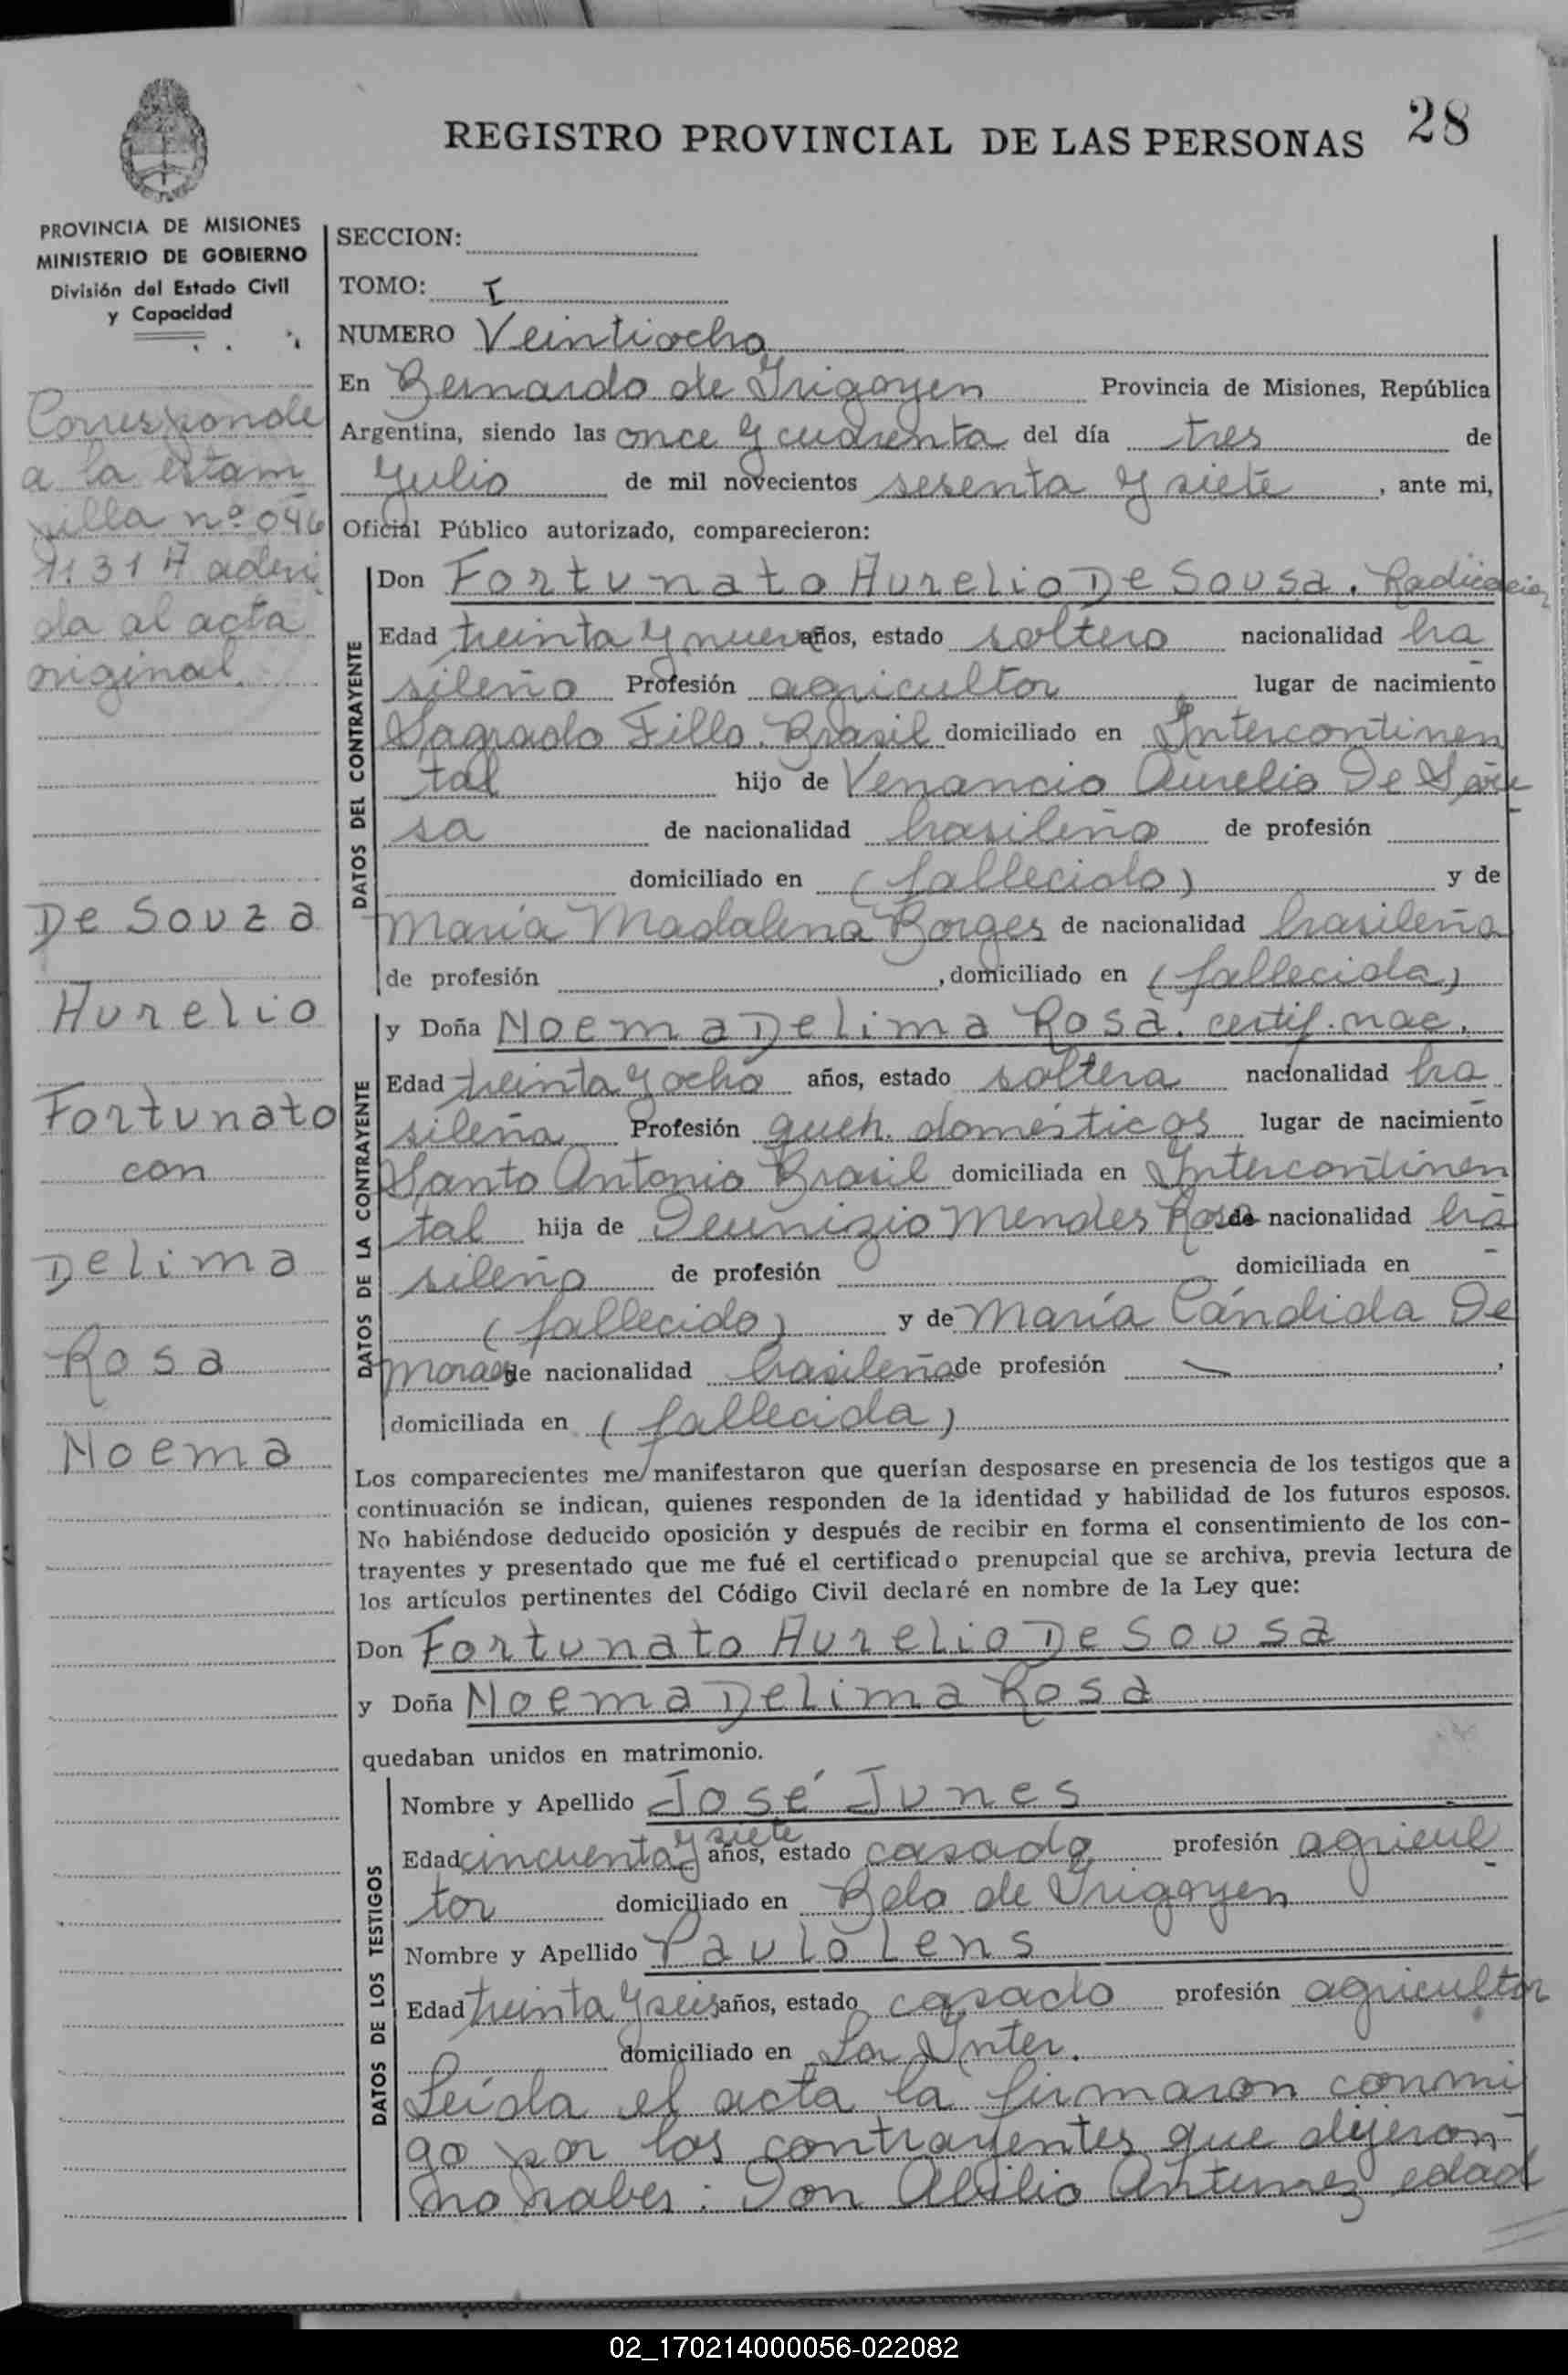 28
REGISTRO PROVINCIAL DE LAS PERSONAS
PROVINCIA DE MISIONES
MINISTERIO DE GOBIERNO
División del Estado Civil
y Capacidad
Corresponde
a la estam
pilla nº 046
11317 aderi
da al acta
original.
De Souza
Aurelio
Fortunato
con
De Lima
Rosa
Noema
SECCION:
TOMO: I
NUMERO Veintiocho
En Bernardo de Irigoyen Provincia de Misiones, República
Argentina, siendo las once y cuarenta del día tres de
Julio de mil novecientos sesenta y siete, ante mi,
Oficial Público autorizado, comparecieron:
DATOS DEL CONTRAYENTE
Don Fortunato Aurelio De Sousa. Radicacion
Edad treinta y nueve años, estado soltero nacionalidad bra
sileño Profesión agricultor lugar de nacimiento
Sagrado Fillo. Brasil domiciliado en Intercontinen
tal hijo de Venancio Aurelio De Sou
sa de nacionalidad brasileño de profesión
domiciliado en (fallecido) y de
María Madalena Borges de nacionalidad brasileña
de profesión , domiciliado en (fallecida)
DATOS DE LA CONTRAYENTE
y Doña Noema De Lima Rosa. certif. nac.
Edad treinta y ocho años, estado soltera nacionalidad bra
sileña Profesión queh. domésticos lugar de nacimiento
Santo Antonio Brasil domiciliada en Intercontinen
tal hija de Deunizio Mendes Rosa de nacionalidad bra
sileño de profesión domiciliada en
(fallecido) y de María Cándida De
Moraes de nacionalidad brasileña de profesión ,
domiciliada en (fallecida)
Los comparecientes me manifestaron que querían desposarse en presencia de los testigos que a
continuación se indican, quienes responden de la identidad y habilidad de los futuros esposos.
No habiéndose deducido oposición y después de recibir en forma el consentimiento de los con-
trayentes y presentado que me fué el certificado prenupcial que se archiva, previa lectura de
los artículos pertinentes del Código Civil declaré en nombre de la Ley que:
Don Fortunato Aurelio De Sousa
y Doña Noema De Lima Rosa
quedaban unidos en matrimonio.
DATOS DE LOS TESTIGOS
Nombre y Apellido José Junes
Edad cincuenta y siete años, estado casado profesión agricul
tor domiciliado en Bdo de Irigoyen
Nombre y Apellido Paulo Lens
Edad treinta y seis años, estado casado profesión agricultor
domiciliado en La Inter.
Leída el acta la firmaron conmi
go por los contrayentes que dijeron
no saber: Don Abilio Antunez edad
02_170214000056-022082